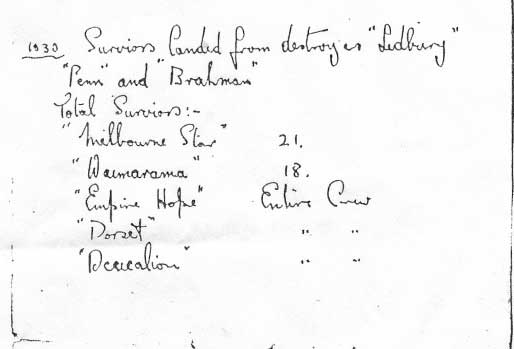 1930 Surviors landed from destroyers "Ledbury"
"Penn" and "Brahman"
Total Surviors:-
"Melbourne Star" 21.
"Waimarama" 18.
"Empire Hope" Entire Crew
"Dorset" " "
"Deucalion" " "